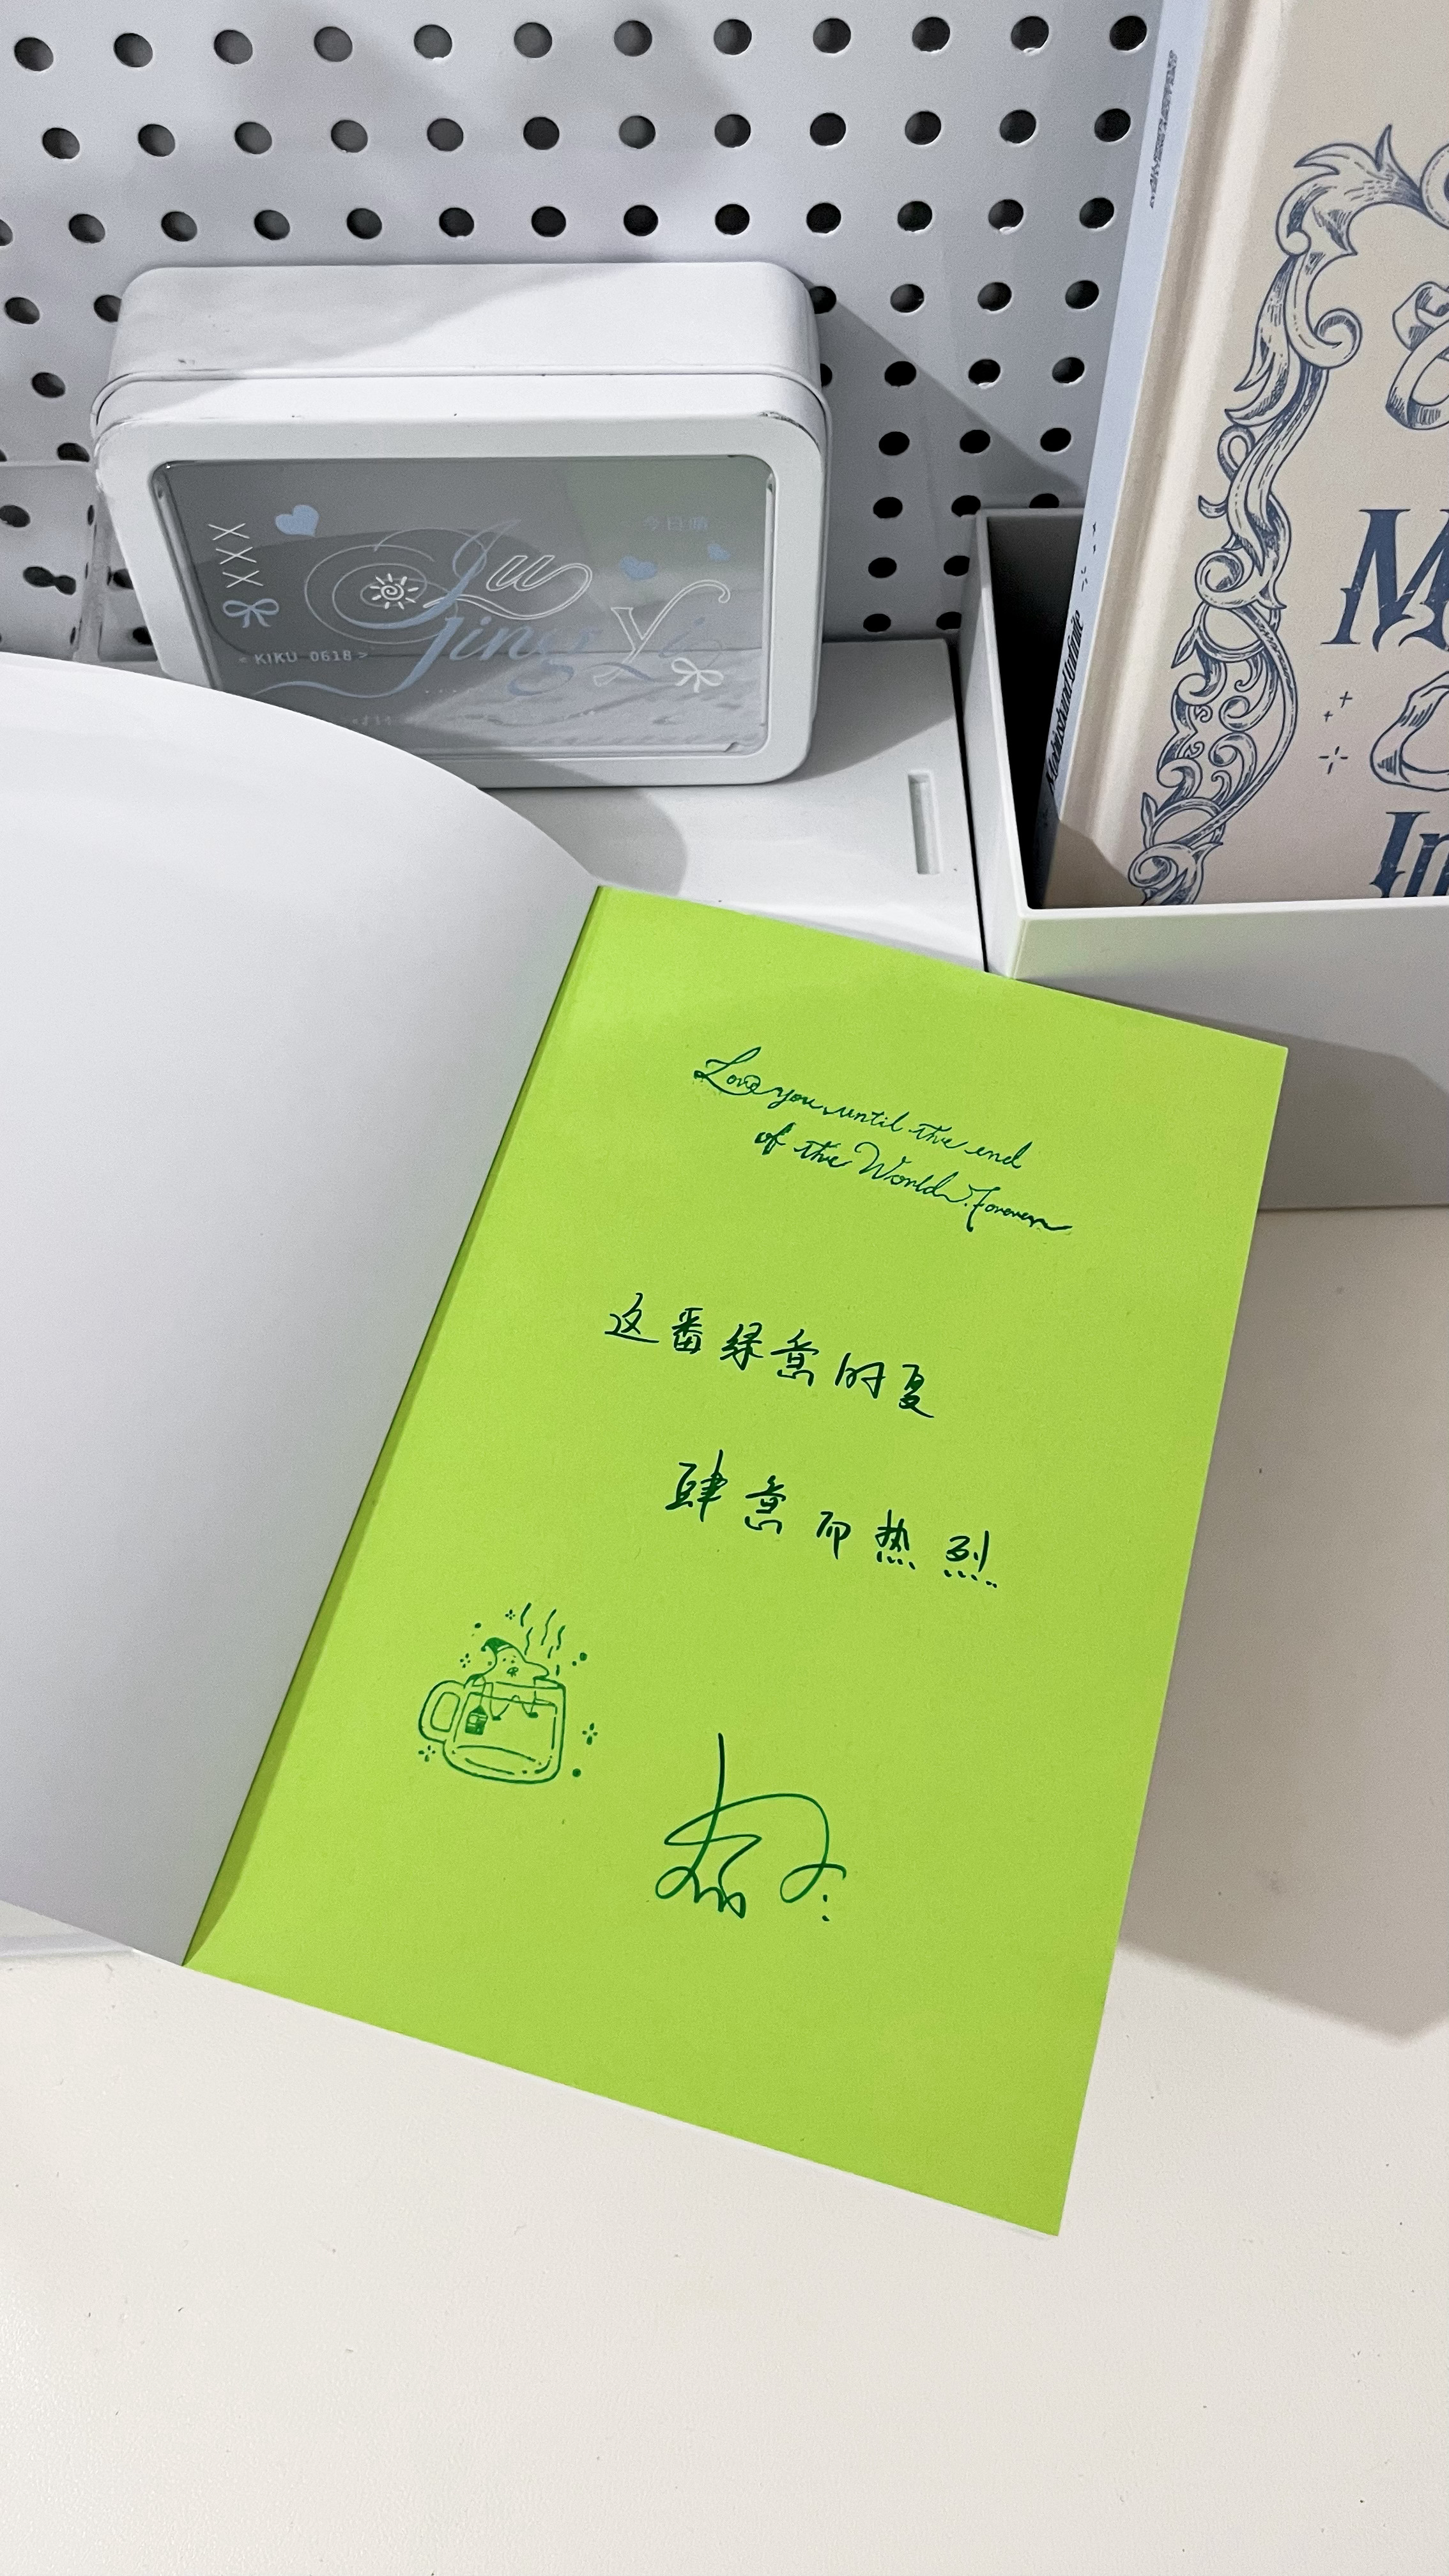 今日晴
Ju
Jing Yi
< KIKU 0618 >
M
In
Love you until the end
of the World. Forever
这番绿意的夏
肆意而热烈